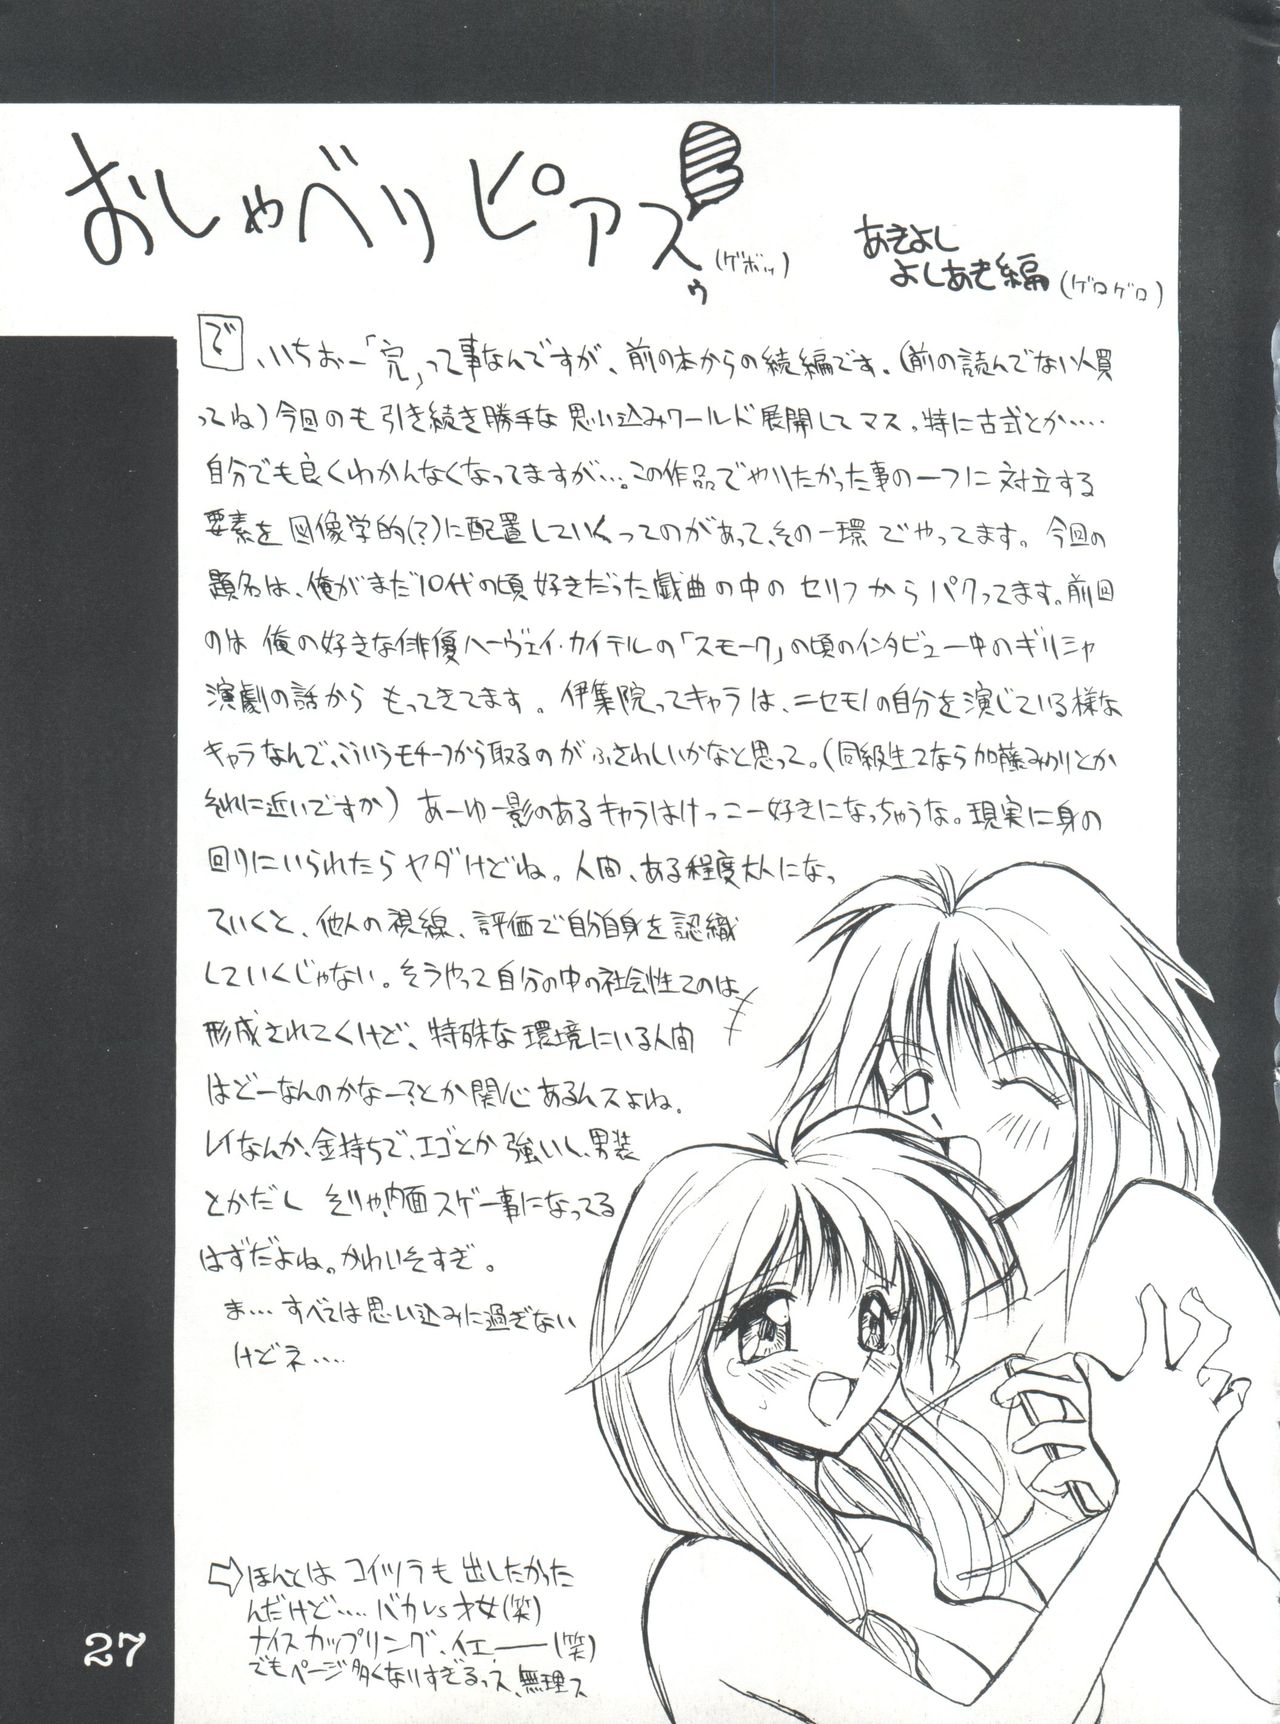 おしゃべりピアスゥ(ゲボッ)
あきよし
よしあき編(ゲロゲロ)
で、いちおー「完」って事なんですが、前の本からの続編です。(前の読んでない人買
ってね)今回のも引き続き勝手な思い込みワールド展開してマス。特に古式とか‥‥‥
自分でも良くわかんなくなってますが‥‥。この作品でやりたかった事の一つに対立する
要素を図像学的(?)に配置していくってのがあって、その一環でやってます。今回の
題名は、俺がまだ10代の頃好きだった戯曲の中のセリフからパクってます。前回
のは俺の好きな俳優ハーヴェイ・カイテルの「スモーク」の頃のインタビュー中のギリシャ
演劇の話からもってきてます。伊集院ってキャラは、ニセモノの自分を演じている様な
キャラなんで、こういうモチーフから取るのがふさわしいかなと思って。(同級生2なら加藤みのりとか
それに近いですか)あーゆー影のあるキャラはけっこー好きになっちゃうな。現実に身の
回りにいられたらヤダけどね。人間、ある程度大人になっ
ていくと、他人の視線、評価で自分自身を認識
していくじゃない。そうやって自分の中の社会性てのは
形成されてくけど、特殊な環境にいる人間
はどーなんのかなー?とか関心あるんスよね。
レイなんか、金持ちで、エゴとか強いし、男装
とかだし そりゃ内面スゲー事になってる
はずだよね。かわいそすぎ。
ま‥‥すべては思い込みに過ぎない
けどネ‥‥‥
⇨ほんとはコイツラも出したかった
んだけど‥‥‥バカvs才女(笑)
ナイスカップリング、イエー――(笑)
でもページ多くなりすぎるっス、無理ス
27